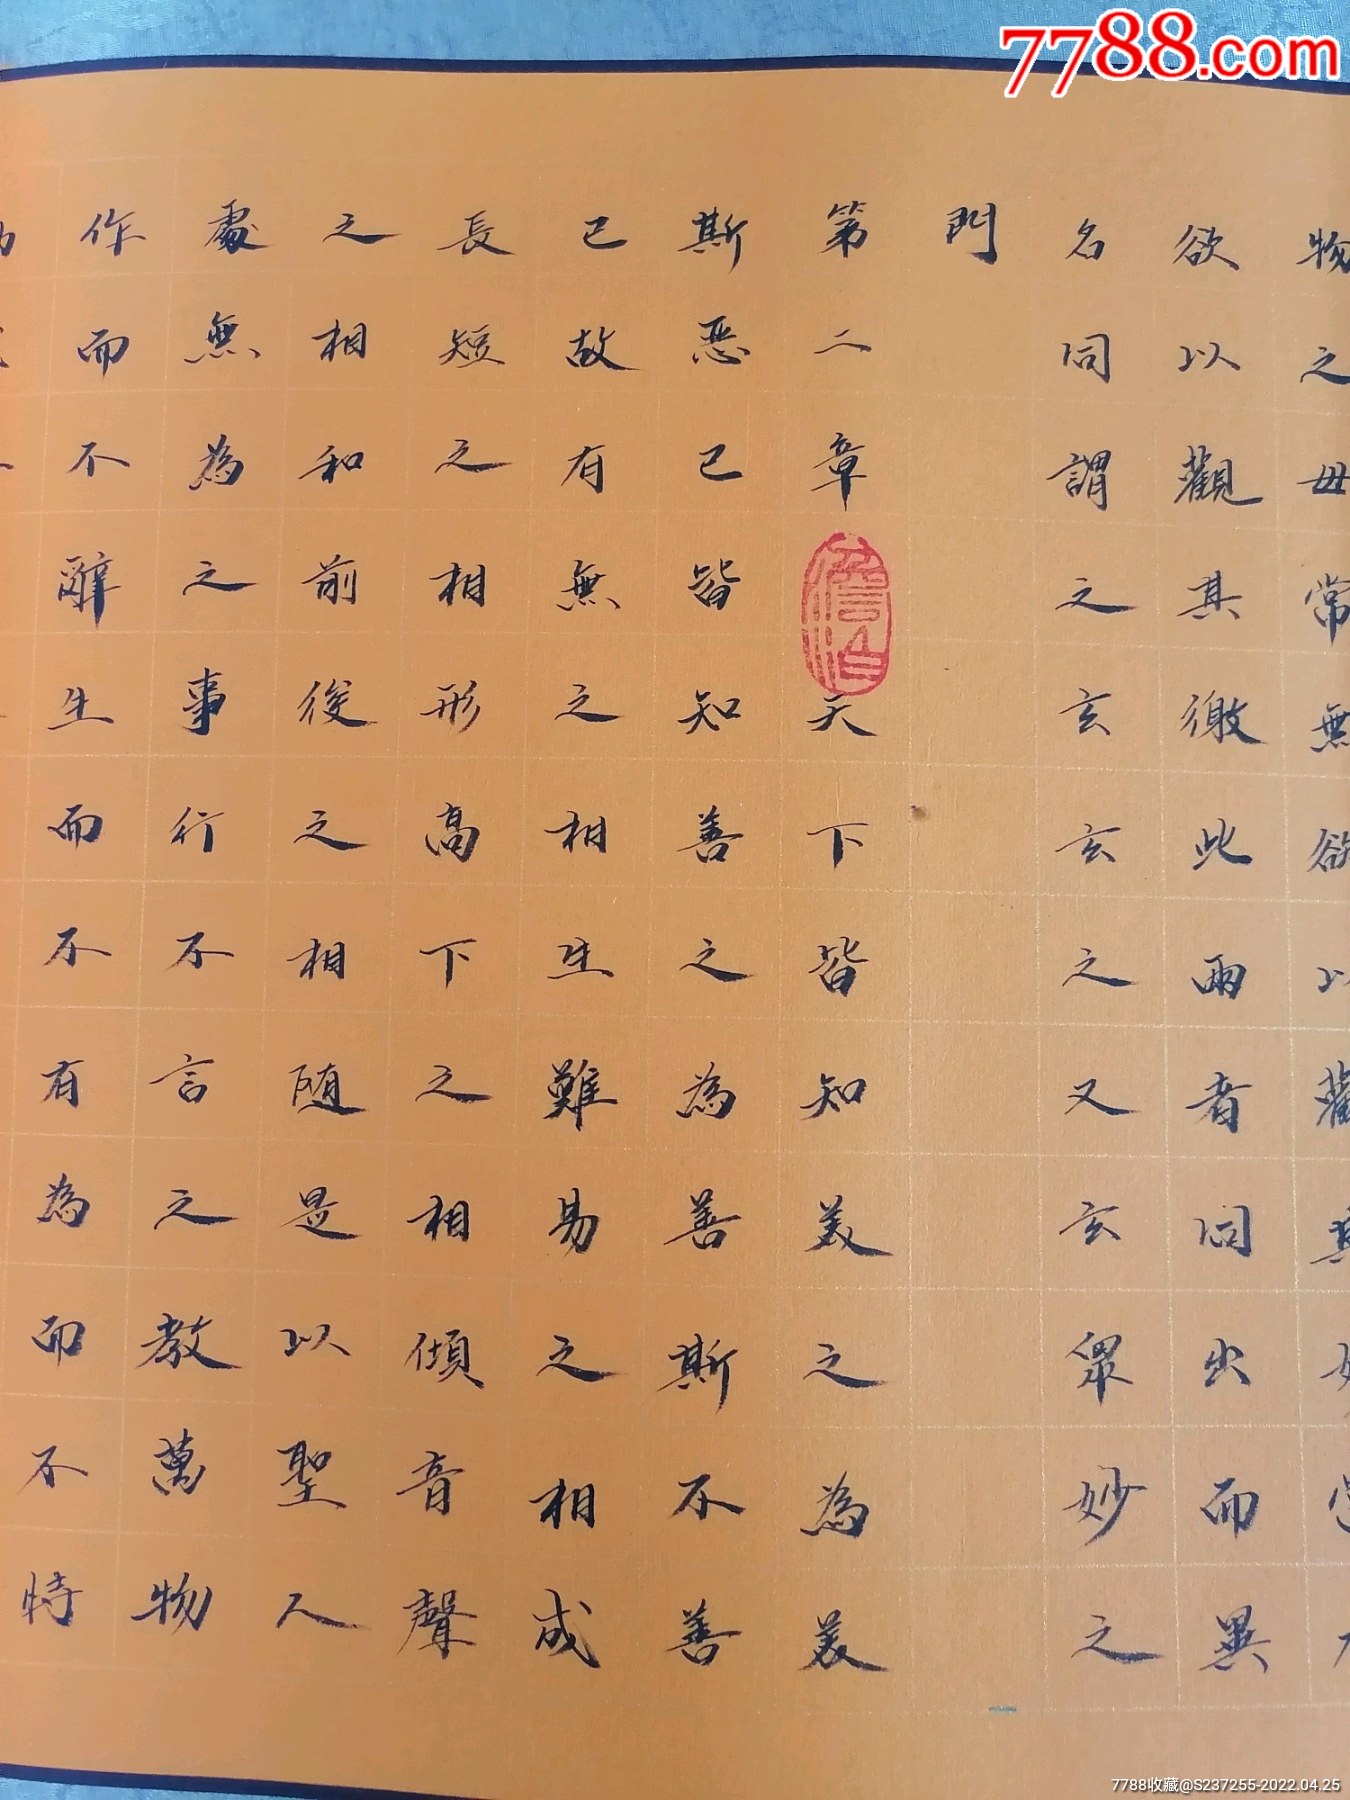 7788.com
物之毋常無欲以觀其妙
欲以觀其徼此兩者同出而異
名同謂之玄玄之又玄眾妙之
門
第二章澹泊天下皆知美之為美
斯恶已皆知善之為善斯不善
已故有無之相生難易之相成
長短之相形高下之相傾音聲
之相和前後之相随是以聖人
處無為之事行不言之教萬物
作而不辭生而不有為而不特
7788收藏@S237255-2022.04.25